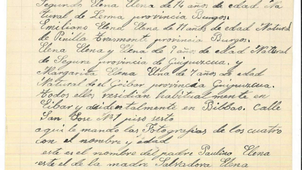 Segundo Elena Elena de 14 años de edad Na
tural de Lerma provincia Burgos
Emiliano Elena Elena de 11 años de edad Natural
de Pinilla Trasmonte provincia Burgos.
Elena Elena y Elena de 9 años de edad Natural
de Segura provincia de Guipuzcoa, y
Margarita Elena Elena de 7 años de edad
Natural de Eibar provincia Guipuzcoa.
todos ellos residian habitualmente en
Eibar y accidentalmente en Bilbao. Calle
San Jose Nº1 piso sexto
aqui le mando las Fotografias de los cuatro
con el nombre y edad
este es el nombre del padre Paulino Elena
este el de la madre Salvadora Elena